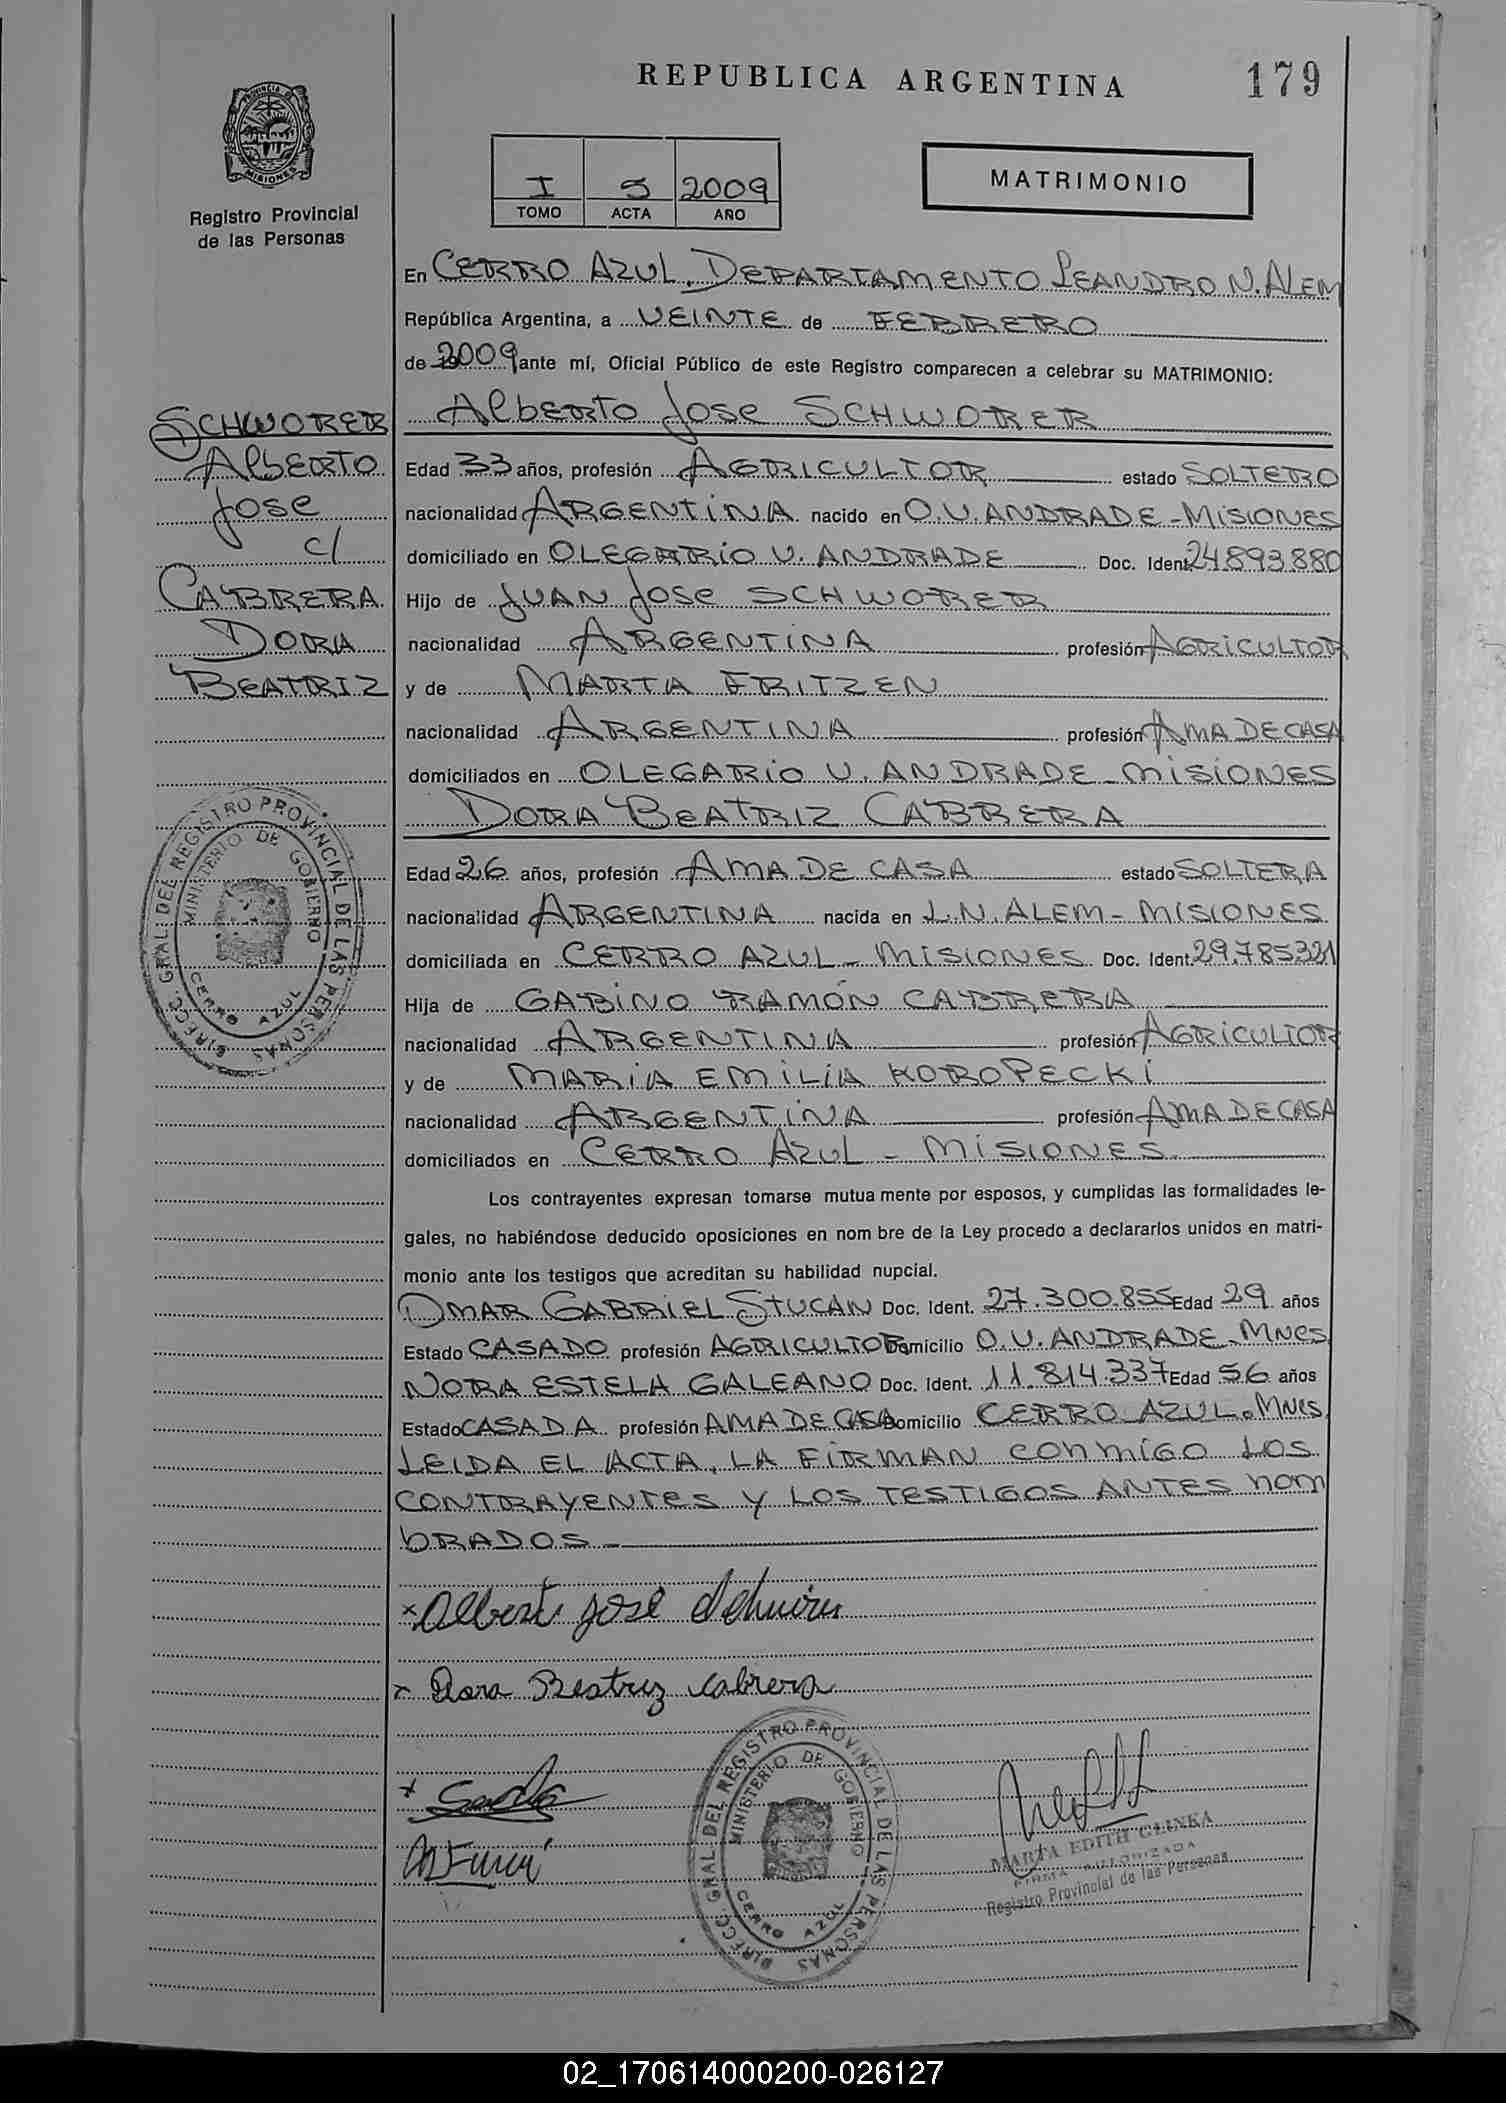 REPUBLICA ARGENTINA
179
PROVINCIA DE
MISIONES
Registro Provincial
de las Personas
I 5 2009
TOMO ACTA AÑO
MATRIMONIO
En CERRO AZUL. DEPARTAMENTO LEANDRO N. ALEM
República Argentina, a VEINTE de FEBRERO
de 2009 ante mí, Oficial Público de este Registro comparecen a celebrar su MATRIMONIO:
Alberto Jose SCHWORER
SCHWORER
Alberto
Jose
c/
CABRERA
DORA
BEATRIZ
Edad 33 años, profesión AGRICULTOR estado SOLTERO
nacionalidad ARGENTINA nacido en O.V. ANDRADE - MISIONES
domiciliado en OLEGARIO V. ANDRADE Doc. Ident. 24.893.880
Hijo de JUAN Jose SCHWORER
nacionalidad ARGENTINA profesión AGRICULTOR
y de MARTA FRITZEN
nacionalidad ARGENTINA profesión AMA DE CASA
domiciliados en OLEGARIO V. ANDRADE - MISIONES
DORA BEATRIZ CABRERA
Edad 26 años, profesión AMA DE CASA estado SOLTERA
nacionalidad ARGENTINA nacida en L.N. ALEM - MISIONES
domiciliada en CERRO AZUL - MISIONES Doc. Ident. 29.785.321
Hija de GABINO RAMÓN CABRERA
nacionalidad ARGENTINA profesión AGRICULTOR
y de MARIA EMILIA KOROPECKI
nacionalidad ARGENTINA profesión AMA DE CASA
domiciliados en CERRO AZUL - MISIONES
Los contrayentes expresan tomarse mutua mente por esposos, y cumplidas las formalidades le-
gales, no habiéndose deducido oposiciones en nom bre de la Ley procedo a declararlos unidos en matri-
monio ante los testigos que acreditan su habilidad nupcial.
OMAR GABRIEL STUCAN Doc. Ident. 27.300.855 Edad 29 años
Estado CASADO profesión AGRICULTOR Domicilio O.V. ANDRADE - Mnes
NORA ESTELA GALEANO Doc. Ident. 11.814.337 Edad 56 años
Estado CASADA profesión AMA DE CASA Domicilio CERRO AZUL. Mnes
LEIDA EL ACTA, LA FIRMAN CONMIGO LOS
CONTRAYENTES Y LOS TESTIGOS ANTES NOM
BRADOS
DIRECC. GRAL. DEL REGISTRO PROVINCIAL DE LAS PERSONAS
MINISTERIO DE GOBIERNO
CERRO AZUL
x Alberto José Schworer
x Dora Beatriz Cabrera
x
DIRECC. GRAL. DEL REGISTRO PROVINCIAL DE LAS PERSONAS
MINISTERIO DE GOBIERNO
CERRO AZUL
MARTA EDITH GLINKA
FIRMA AUTORIZADA
Registro Provincial de las Personas
02_170614000200-026127